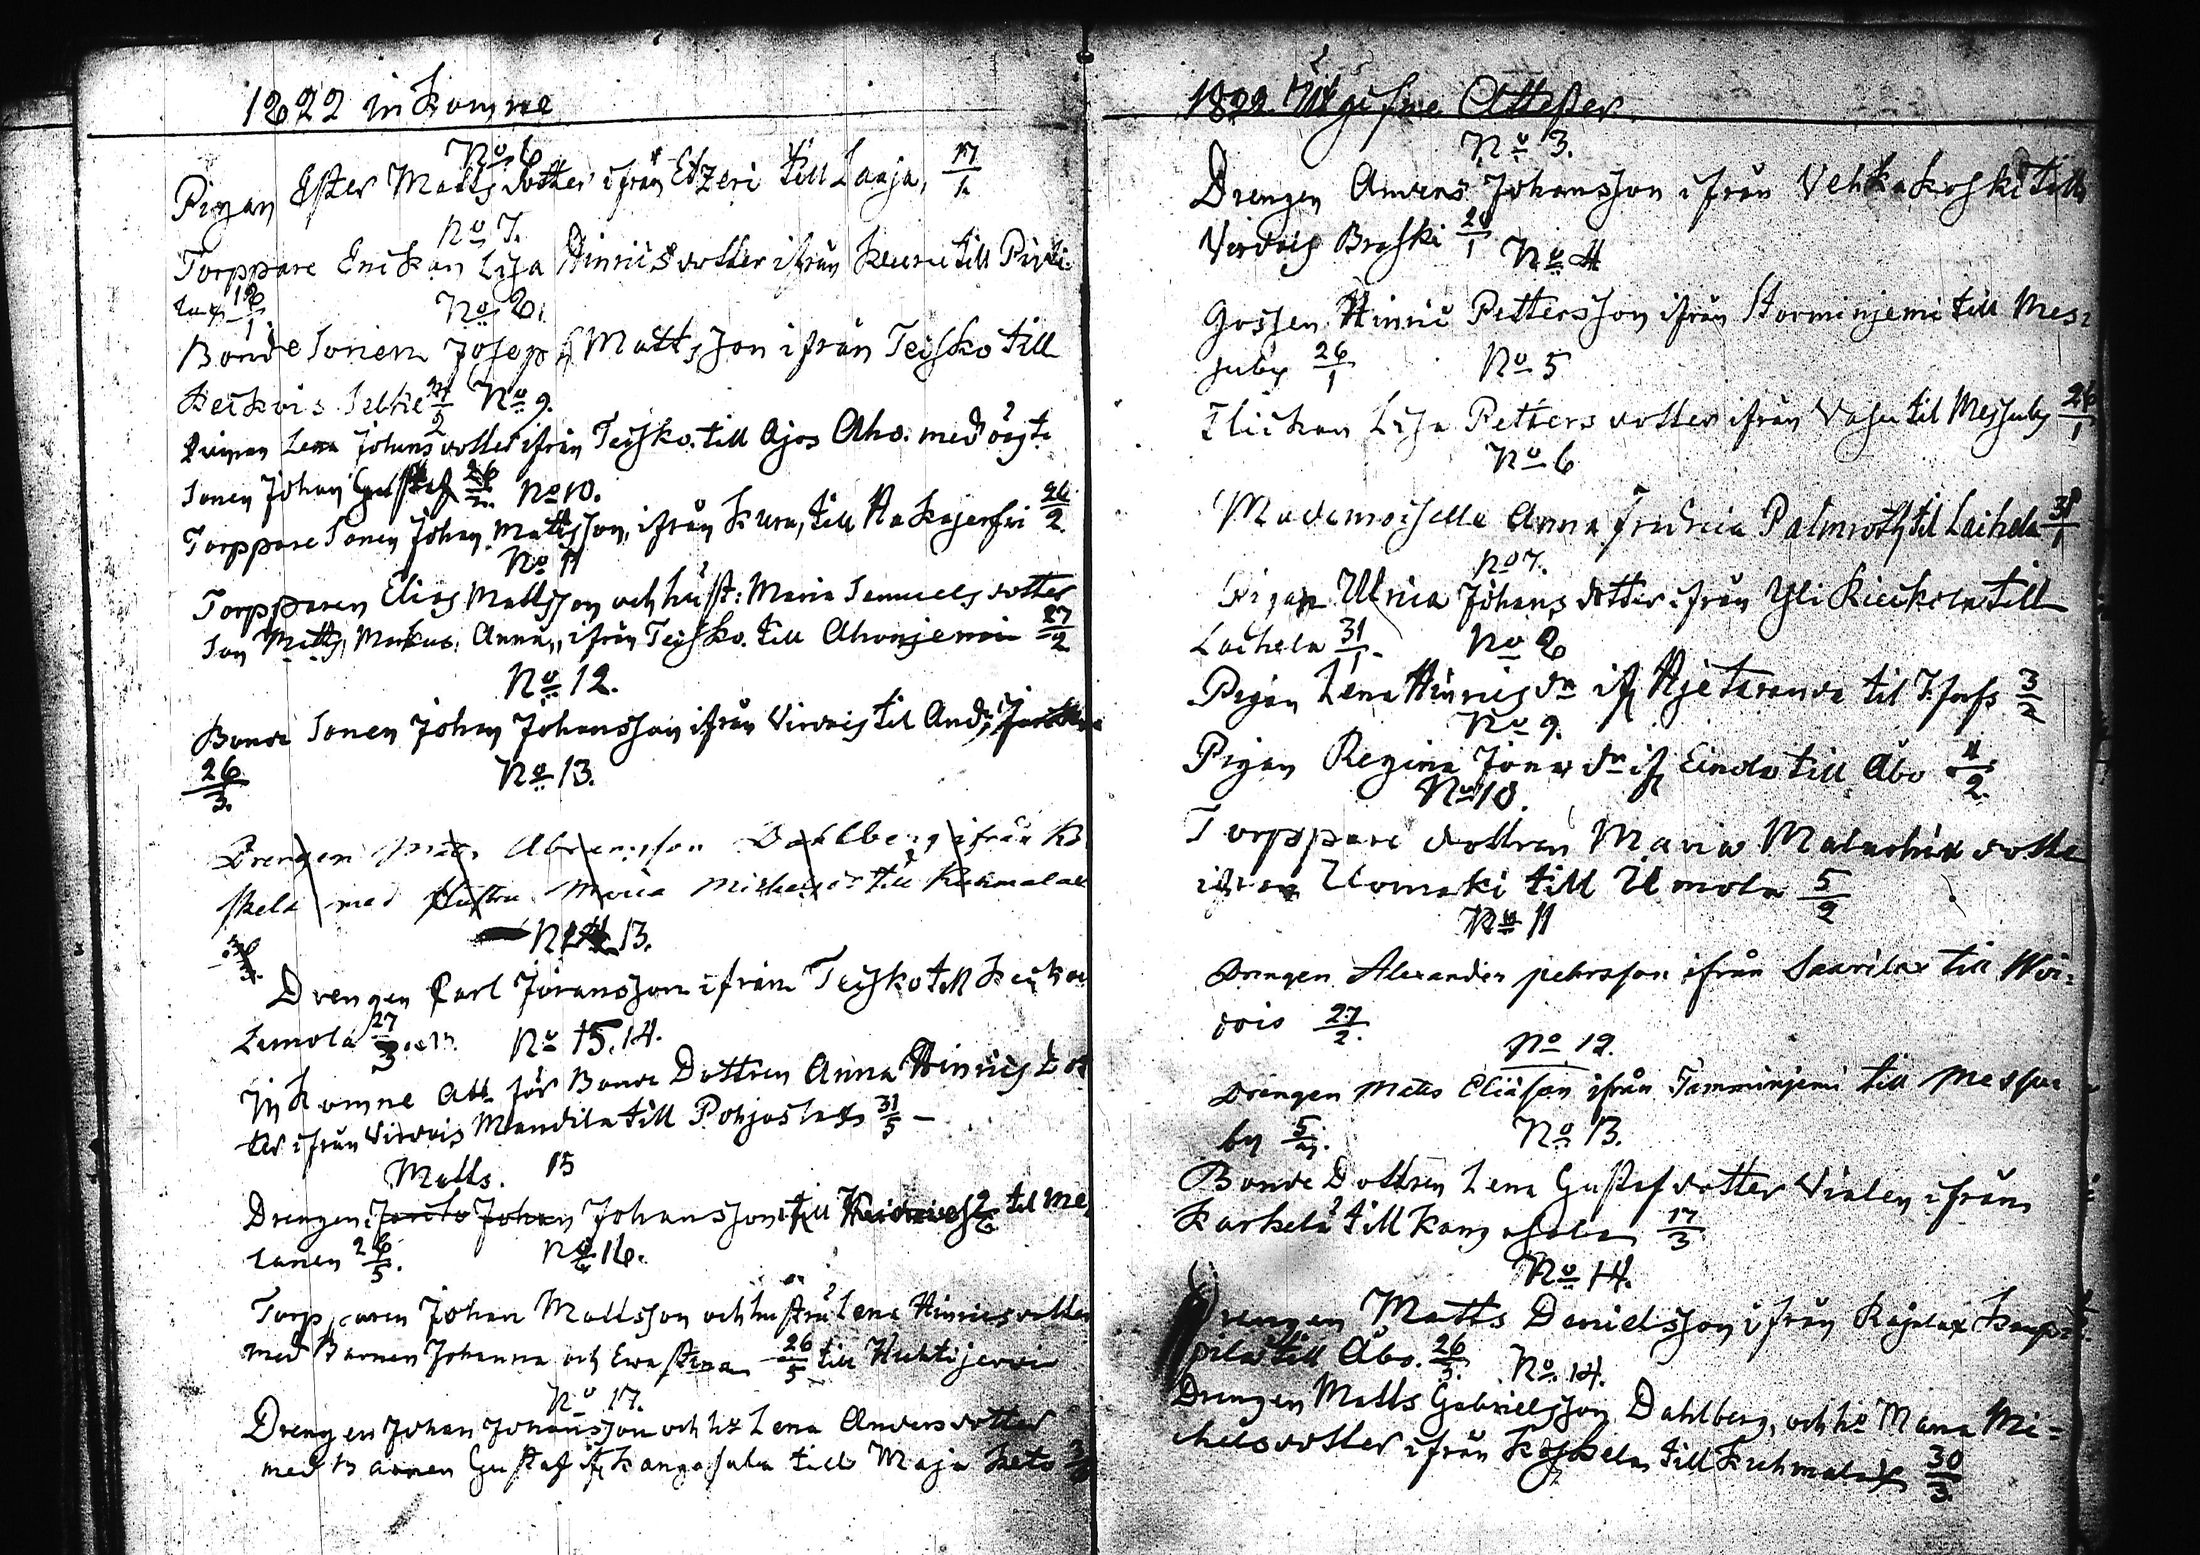 1822 inkomne
No 6.
Pigan Ester Matts dotter ifrån Etzeri till Laaja, 17/1
No 7.
Torppare Enckan Lisa Hinrics dotter ifrån Keuru till Pirti-
lax 18/1.
No 8.
Bonde Sonen Joseph Mattsson ifrån Teisko till
Keckois Selke 21/2 No 9.
Pigan Lena Johans dotter ifrån Teisko. till Ajos Aho. med oägt.
Sonen Johan Gustaf 26/2. No 10.
Torppare Sonen Johan Mattsson, ifrån Kuru, till Hakajerfvi 26/2.
No 11
Torpparen Elias Mattsson och hust: Maria Samuels dotter
Son Matts, Markus, Anna, ifrån Teisko. till Ahonjemi 27/2
No 12.
Bonde Sonen Johan Johansson ifrån Virdois til And:
26/3.
No 13.
Drengen Mats Abramsson Dahlberg ifrån Ko
skela med hustru Maria Michelsdr till Kuhmalax
13.
Drengen Carl Joransson ifrån Teisko till Keckois
Lemola 27/3. No 15. 14.
Inkomne Att. för Bonde Dottren Anna Hinrics Dot
ter ifrån Virdois Mandila till Pohjaslax 31/5 –
Matts. 15
Drengen Jacob Johan Johansson till til Me
lanen 26/5. No 16.
Torpparen Johan Mattsson och hustru Lena Hinricsdotter
med Barnen Johanna och Ewa Stina 26/5 till Huhtijerwi
No 17.
Drengen Johan Johansson och h. Lena Andersdotter
med Barnen Gustaf ifr Kangasala till Maja Keto
1822. Utgifne Attester.
No 3.
Drengen Anders Johansson ifrån Vehkakoski till
Virdois Broski 20/1 No 4
Gossen Hinric Pettersson ifrån Storminjemi till Mes-
suby 26/1 No 5
Flickan Lisa Petters dotter ifrån Vasu til Messuby 26/1
No 6
Mademoiselle Anna Fridrica Palmroth til Laihela 31/1
No 7.
Pigan Ulrica Johans dotter ifrån Yli Kieckola till
Laihela 31/1. No 8
Pigan Lena Hinrics dr ifr Hjetaranda til Ikfors 3/2
No 9.
Pigan Regina Jonae dr ifr Eindo till Åbo 4/2.
No 10.
Torppare dottren Maria Malachia dotte
ifrån Uomaki till Umola 5/2
No 11
Drengen Alexander pehrsson ifrån Saarilax till Wir-
dois 27/2.
No 12.
Drengen Mats Eliasson ifrån Tamminjemi till Messu
by 5/3. No 13.
Bonde Dottren Lena Gustafdotter Vialen ifrån
Karkela till Kangasala 17/3
No 14.
Drengen Matts Danielsson ifrån Rajalax Kaup-
pila till Åbo. 26/3. No. 14.
Drengen Matts Gabrielsson Dahlberg, och ho Maria Mi-
chelsdotter ifrån Koskela, till Kuhmalax 30/3